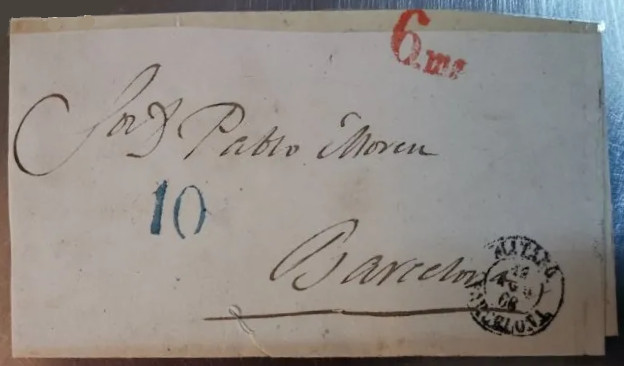 6.ms
Sor D. Pablo Moreu
10
Barcelona
MATARO
AGO
68
BARCELONA